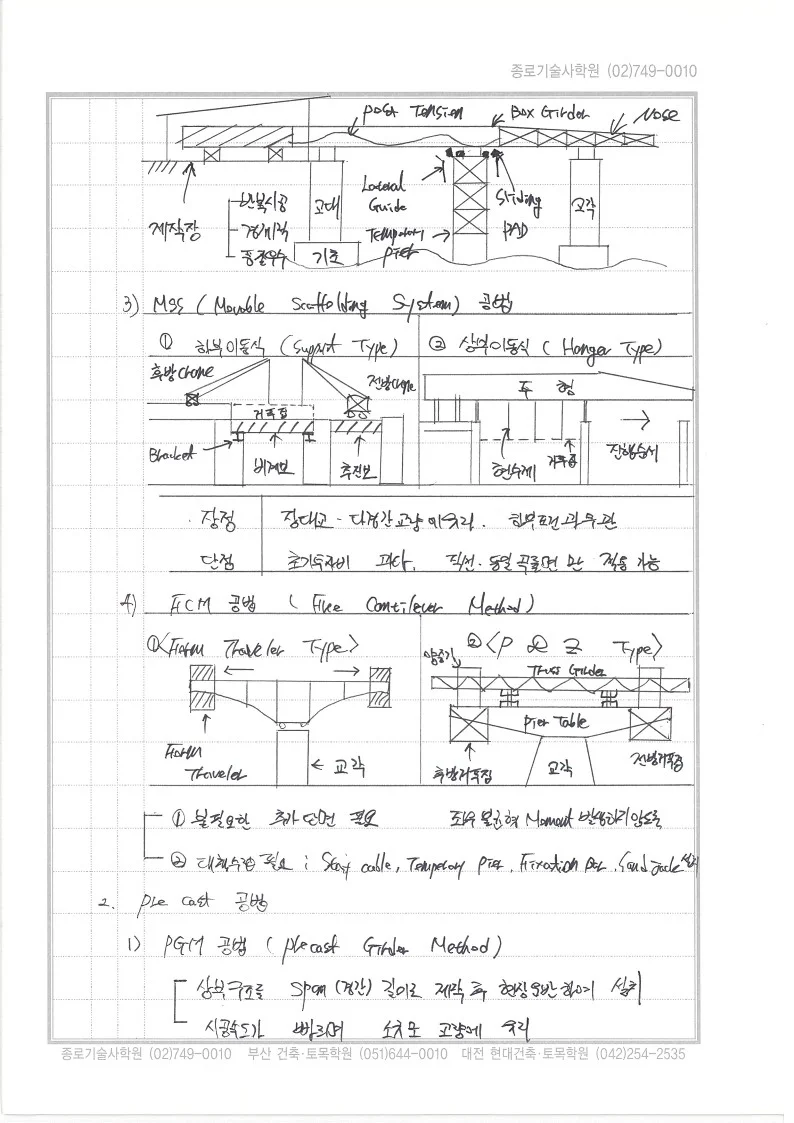 종로기술사학원 (02)749-0010
post Tension
Box Girder
Nose
Lateral Guide
Sliding PAD
제작장
반복시공
경제적
품질우수
교대
기초
Temporary pier
교각
3) MSS (Movable Scaffolding System) 공법
① 하부이동식 (Support Type)
② 상부이동식 (Hanger Type)
후방crane
전방crane
거푸집
Bracket
비계보
추진보
주형
현수재
거푸집
진행순서
장점 장대교·다경간 교량에 유리. 하부조건과 무관
단점 초기투자비 과다. 직선·동일곡률면 만 적용 가능
4) FCM 공법 (Free Cantilever Method)
①<Form Traveler Type>
②<P & Z Type>
Truss Girder
Pier Table
Form Traveler
교각
후방거푸집
교각
전방거푸집
① 불필요한 추가 단면 필요 좌우 불균형 Moment 발생하지 않도록
② 대책수립 필요 : Stay cable, Temporary pier, Fixation bar, Sand Jack 설치
2. Pre cast 공법
1) PGM 공법 (Precast Girder Method)
상부구조를 Span (경간) 길이로 제작 후 현장운반 하여 설치
시공속도가 빠르며 교량에 유리
종로기술사학원 (02)749-0010 부산 건축·토목학원 (051)644-0010 대전 현대건축·토목학원 (042)254-2535